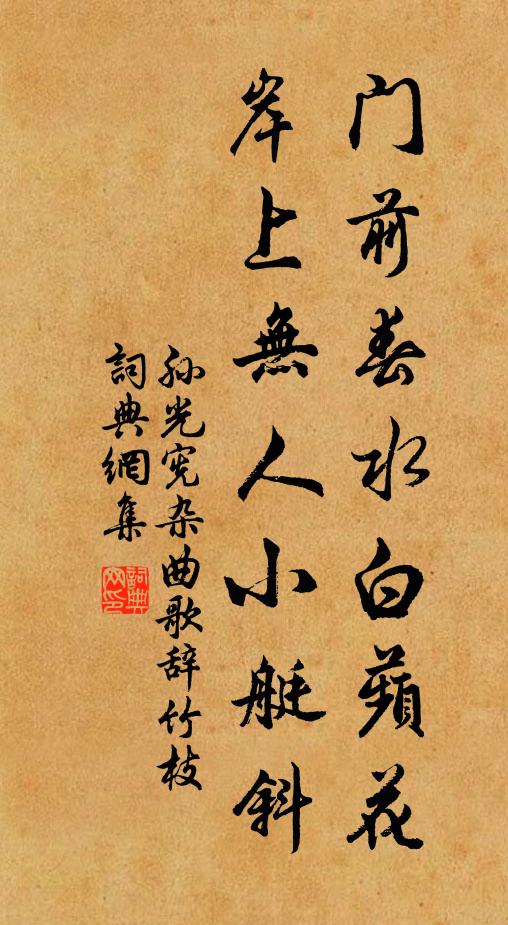 门前春水白蘋花
岸上無人小艇斜
孙光宪杂曲歌辞竹枝
詞典網集
詞典网印